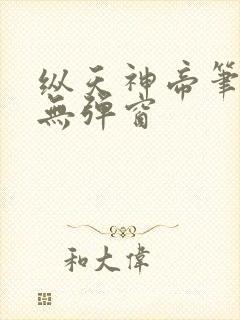 纵天神帝筆
無彈窗
和大偉